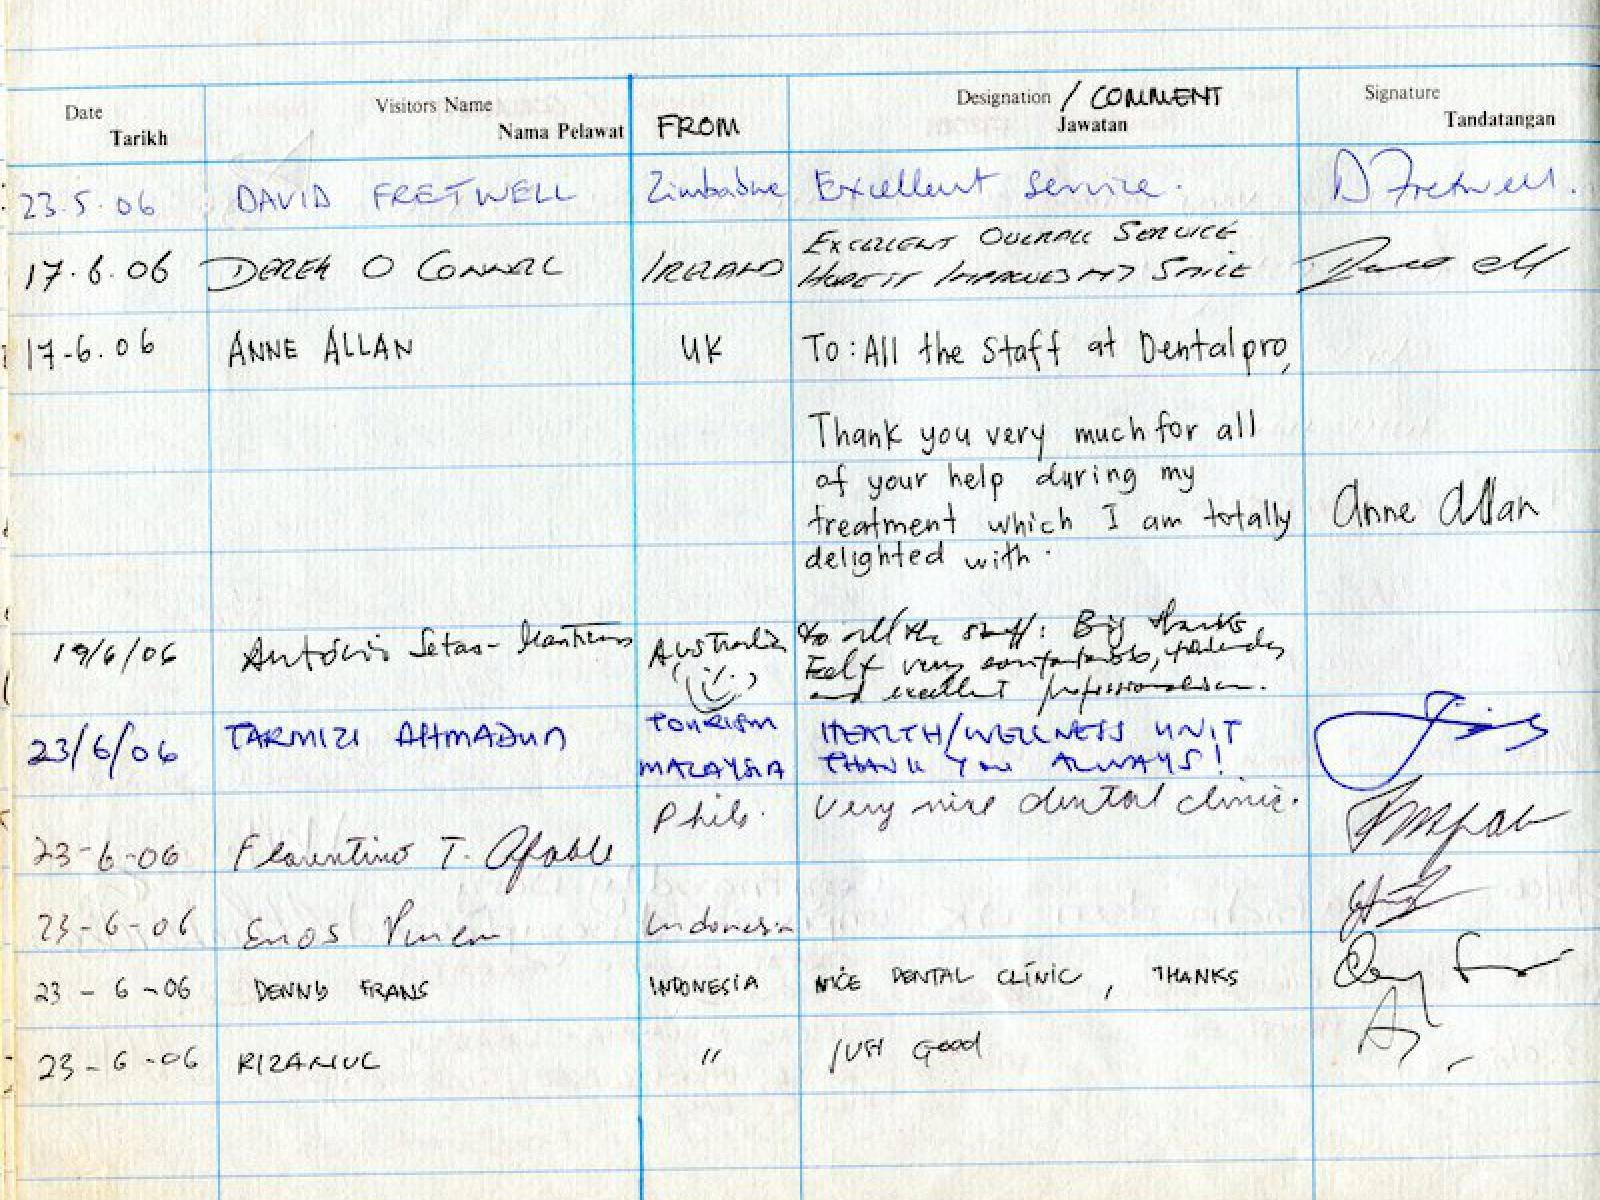 Date Visitors Name Designation / COMMENT Signature
Tarikh Nama Pelawat FROM Jawatan Tandatangan
23.5.06 DAVID FRETWELL Zimbabwe Excellent Service. D Fretwell.
17.6.06 DEREK O CONNELL IRELAND EXCELLENT OVERALL SERVICE
HOPE IT IMPROVES MY SMILE
17-6.06 ANNE ALLAN UK To: All the Staff at Dentalpro,
Thank you very much for all
of your help during my
treatment which I am totally Anne Allan
delighted with.
19/6/06 António Setas- Australia to all the staff: Big thanks,
Felt very comfortable, friendly
and excellent professionalism.
23/6/06 TARMIZI AHMADUN TOURISM HEALTH/WELLNESS UNIT
MALAYSIA THANK YOU ALWAYS!
23-6-06 Florentino T. Afable Phils. Very nice dental clinic.
23-6-06 Enos Indonesia
23-6-06 DENNY FRANS INDONESIA NICE DENTAL CLINIC, THANKS
23-6-06 " Good